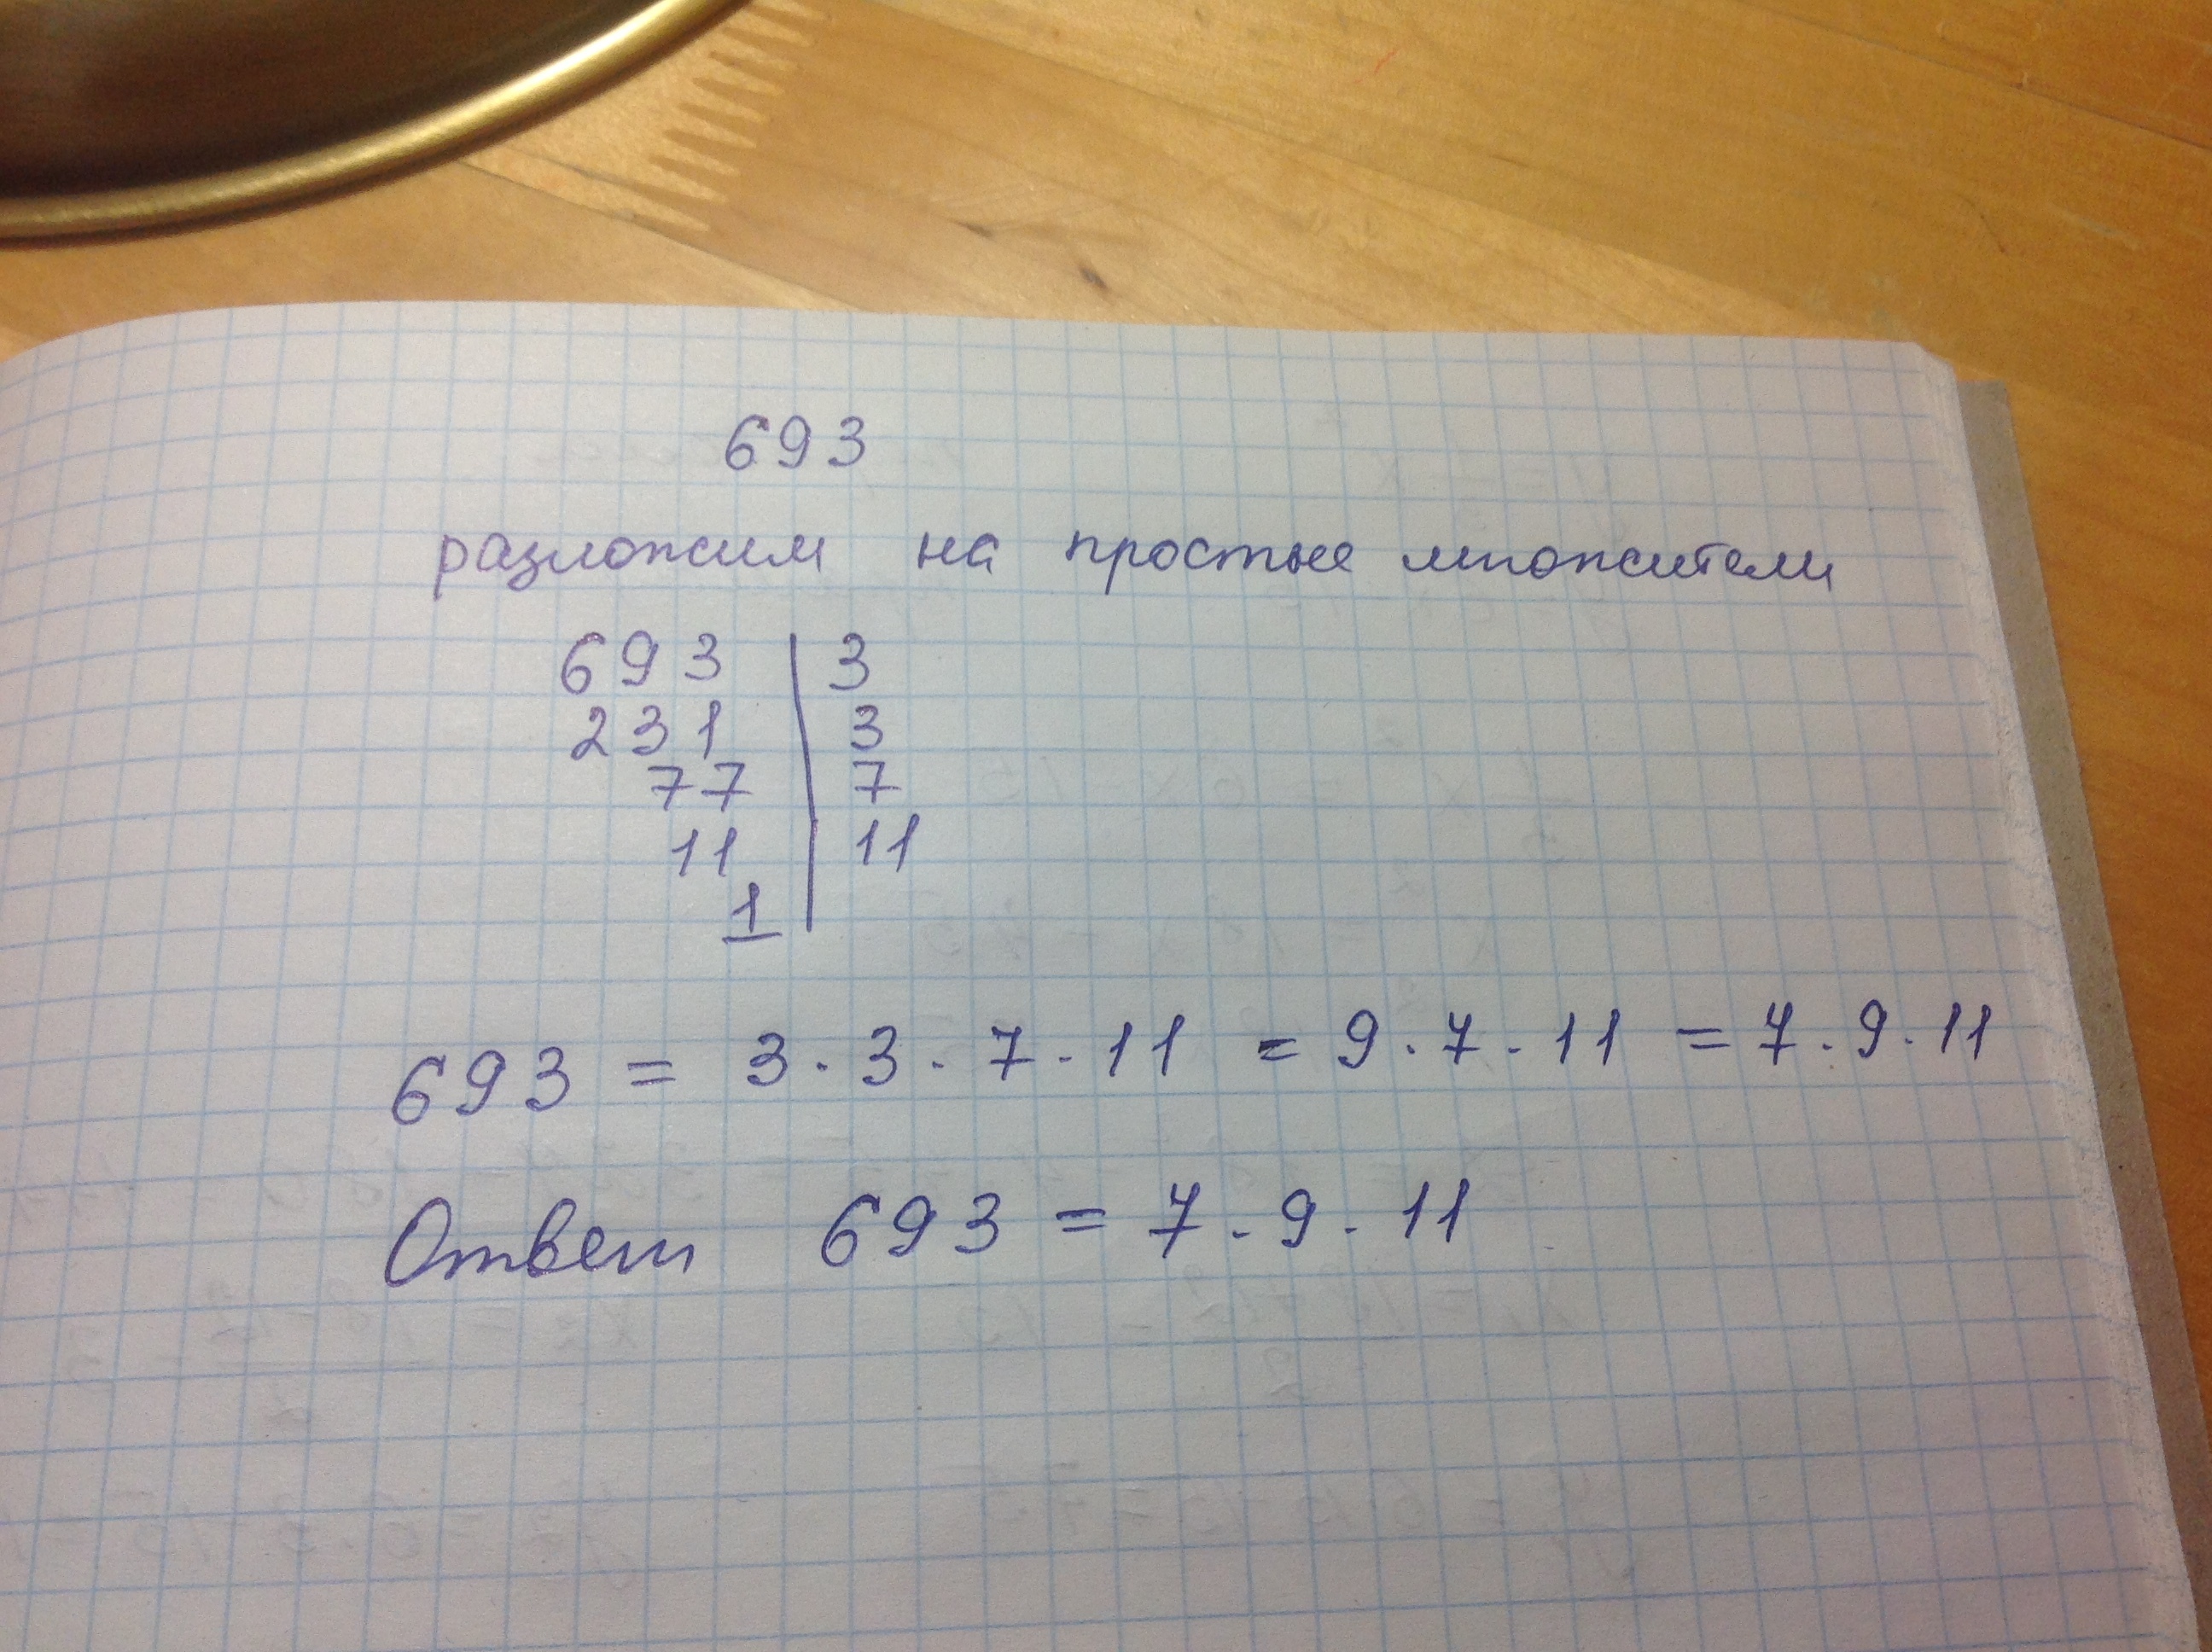 693
разложим на простые множители
693 | 3
231 | 3
77 | 7
11 | 11
1
693 = 3 · 3 · 7 · 11 = 9 · 7 · 11 = 7 · 9 · 11
Ответ 693 = 7 · 9 · 11